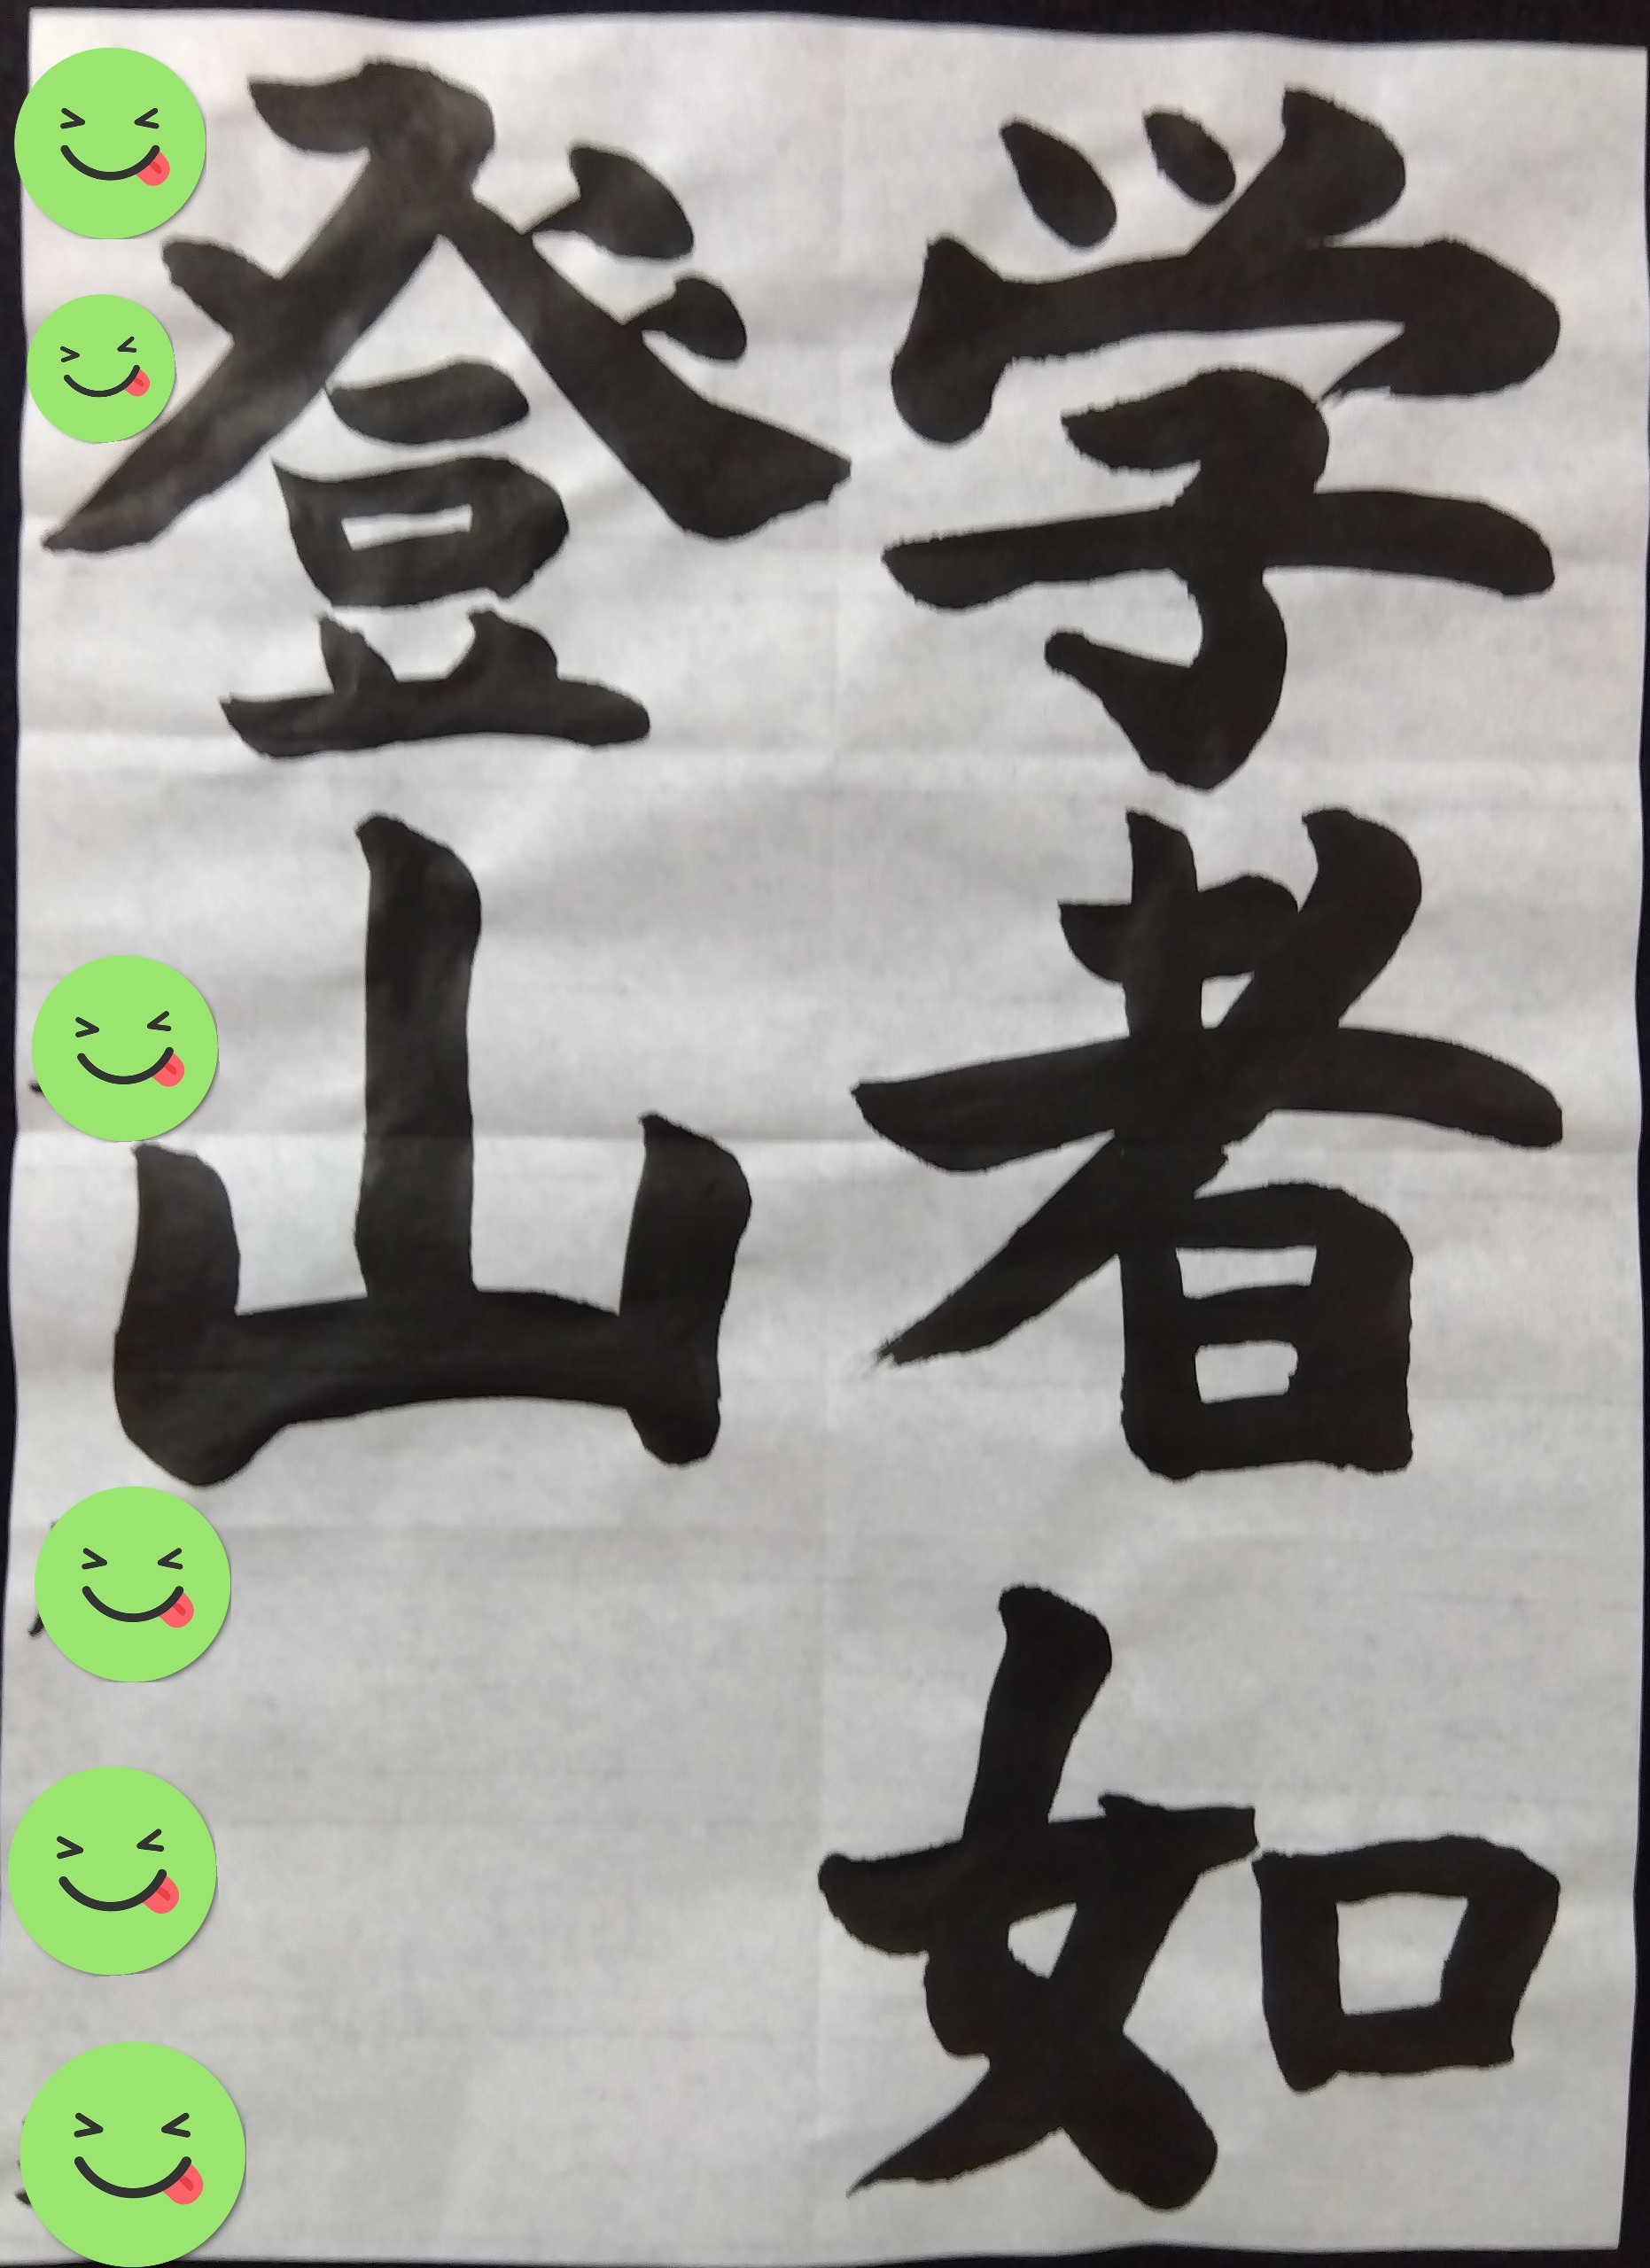 学者如
登山